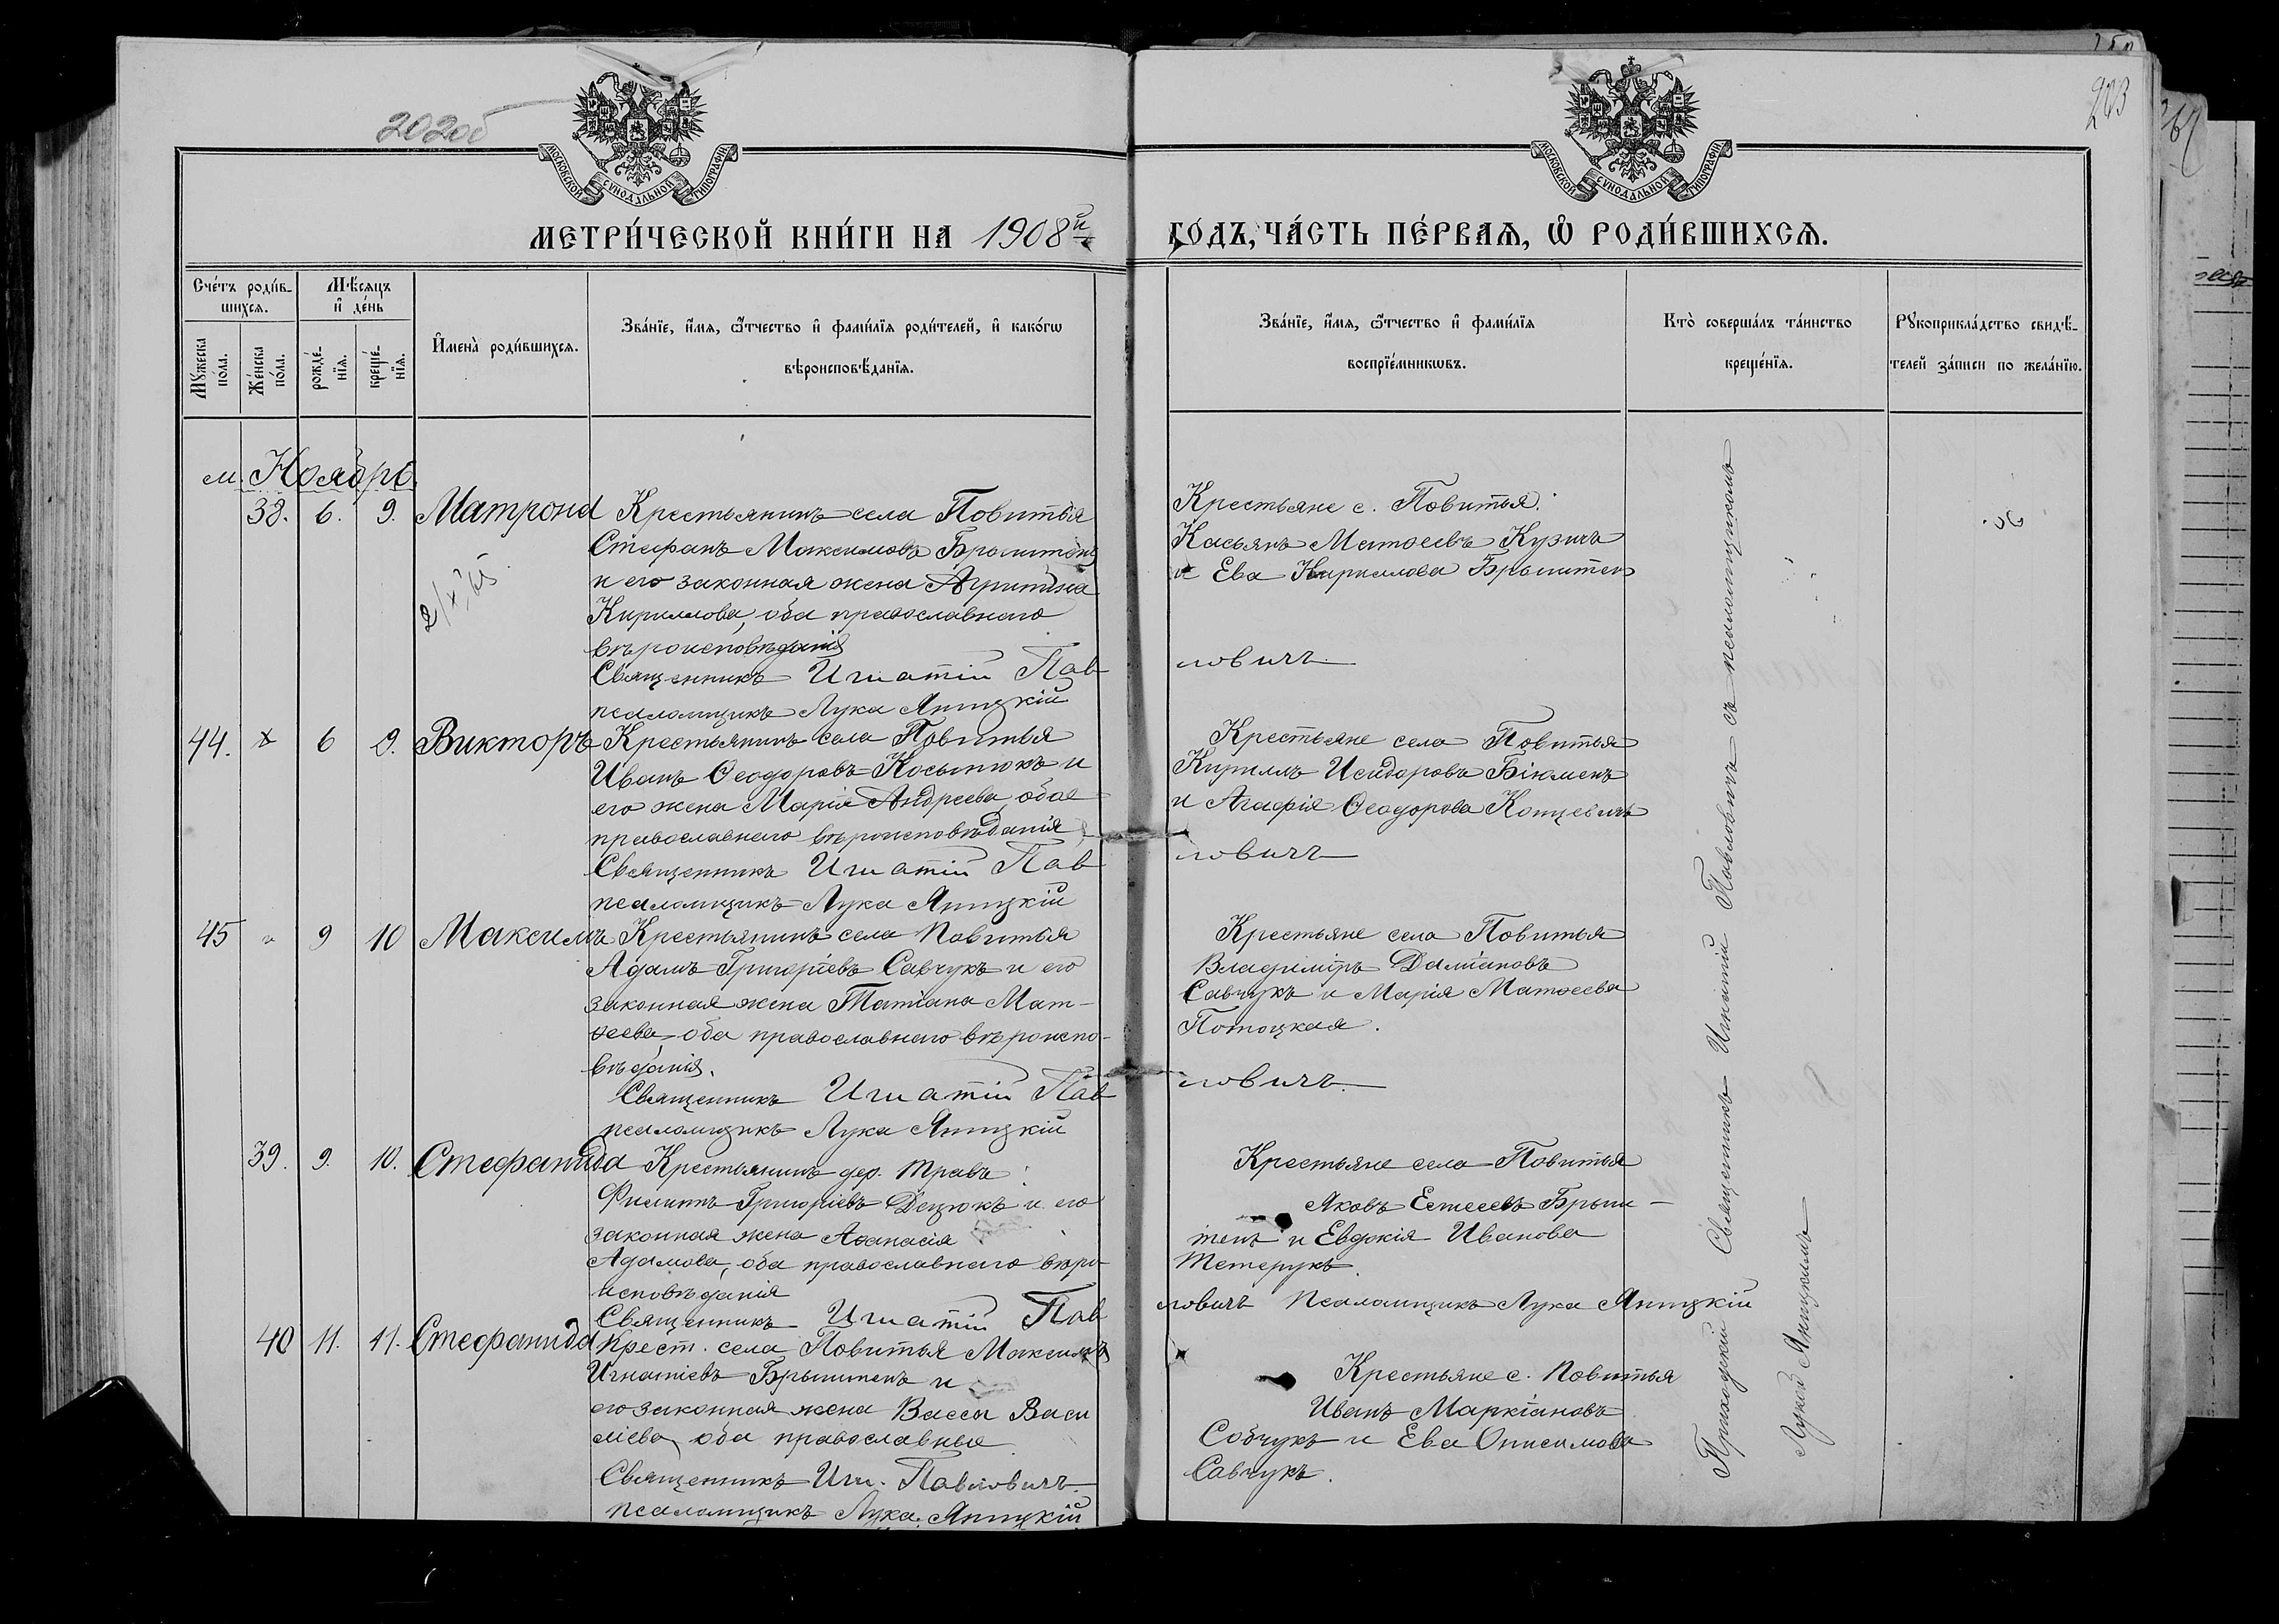 202об
203
МОСКОВСКОЙ СУНОДАЛЬНОЙ ТИПОГРАФІИ
МОСКОВСКОЙ СУНОДАЛЬНОЙ ТИПОГРАФІИ
МЕТРИ́ЧЕСКОЙ КНИ́ГИ НА 1908й ГОДЪ, ЧА́СТЬ ПЕ́РВАѦ, Ѡ҆ РОДИ́ВШИХСѦ.
Сче́тъ роди́в-
шихсѧ.
Мꙋ́жеска
по́ла.
Же́нска
по́ла.
Мѣ́сѧцъ
и҆ де́нь
рожде́-
нїѧ.
креще́-
нїѧ.
И҆мена̀ роди́вшихсѧ.
Зва́нїе, и҆́мѧ, ѻ҆́тчество и҆ фами́лїѧ роди́телей, и҆ како́гѡ
вѣроисповѣ́данїѧ.
Зва́нїе, и҆́мѧ, ѻ҆́тчество и҆ фами́лїѧ
воспрїе́мникѡвъ.
Кто̀ соверша́лъ та́инство
креще́нїѧ.
Рꙋкоприкла́дство свидѣ́-
телей за́писи по жела́нїю.
м. Ноябрь.
38. 6. 9. Матрона
Крестьянинъ села Повитья
Стефанъ Максимовъ Брыштенъ
и его законная жена Агрипина
Кириллова, оба православнаго
вѣроисповѣданія
Священникъ Игнатій Павловичъ
псаломщикъ Лука Яницкій
Крестьяне с. Повитья:
Касьянъ Матѳеевъ Кузичъ
и Ева Кириллова Брыштен
44. 6 9. Викторъ
Крестьянинъ села Повитья
Иванъ Ѳеодоровъ Косынюкъ и
его жена Марія Андреева, обое
православнаго вѣроисповѣданія
Священникъ Игнатій Павловичъ
псаломщикъ Лука Яницкій
Крестьяне села Повитья
Кириллъ Исидоровъ Бікменъ
и Агафія Ѳеодорова Концевичъ
45 9 10 Максимъ
Крестьянинъ села Повитья
Адамъ Григоріевъ Савчукъ и его
законная жена Татіана Мат-
ѳеева, оба православнаго вѣроиспо-
вѣданія.
Священникъ Игнатій Павловичъ
псаломщикъ Лука Яницкій
Крестьяне села Повитья
Владиміръ Даміановъ
Савчукъ и Марія Матѳеева
Потоцкая.
39. 9. 10. Стефанида
Крестьянинъ дер. Травъ:
Филиппъ Григоріевъ Децюкъ и его
законная жена Аѳанасія
Адамова, оба православнаго вѣро-
исповѣданія
Священникъ Игнатій Павловичъ псаломщикъ Лука Яницкій
Крестьяне села Повитья
Яковъ Евсеевъ Брыш-
тенъ и Евдокія Иванова
Тетерукъ.
40 11. 11. Стефанида
Крест. села Повитья Максимъ
Игнатіевъ Брыштенъ и
его законная жена Васса Васи
ліева, оба православные
Священникъ Игн. Павловичъ.
псаломщикъ Лука Яницкій
Крестьяне с. Повитья
Иванъ Маркіановъ
Собчукъ и Ева Онисимова
Савчукъ.
Приходскій Священникъ Игнатій Павловичъ съ псаломщикомъ
Лукой Яницкимъ